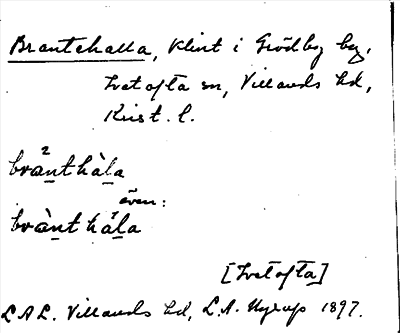 Brantehalla, klint i Grödby by,
Ivetofta sn, Villands hd,
Krist. l.
brä̀nthàla
även:
brànthála
[Ivetofta]
L.A.L. Villands hd, L.A. Nyrup 1897.